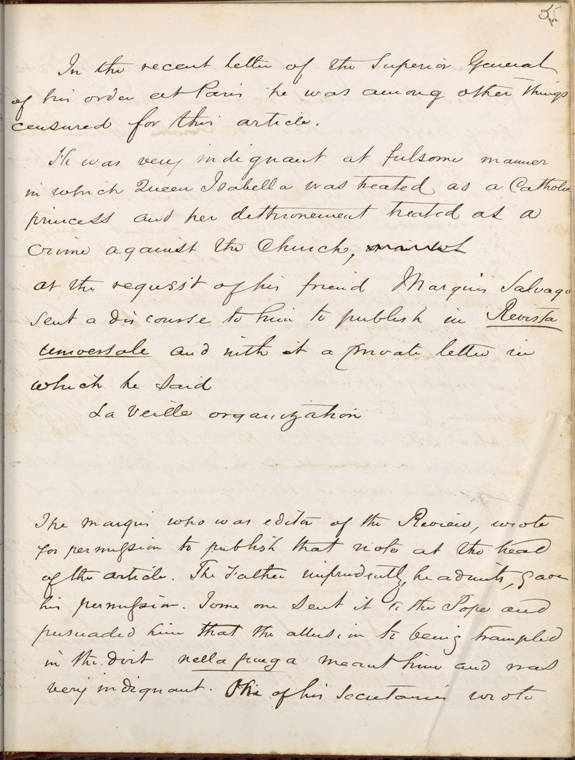 In the recent letter of the Superior General
of his order at Paris he was among other things
censured for this article.
He was very indignant at fulsome manner
in which Queen Isabella was treated as a Catholic
princess and her dethronement treated as a
crime against the Church,
at the request of his friend Marquis Salvago
sent a discourse to him to publish in Revista
Universale and with it a private letter in
which he said
La Veille organization
The marquis who was editor of the Review, wrote
for permission to publish that note at the head
of the article. The Father imprudently, he admits, gave
his permission. Some one sent it to the Pope and
persuaded him that the allusion to being trampled
in the dirt nella fanga meant him and was
very indignant. One of his secretaries wrote